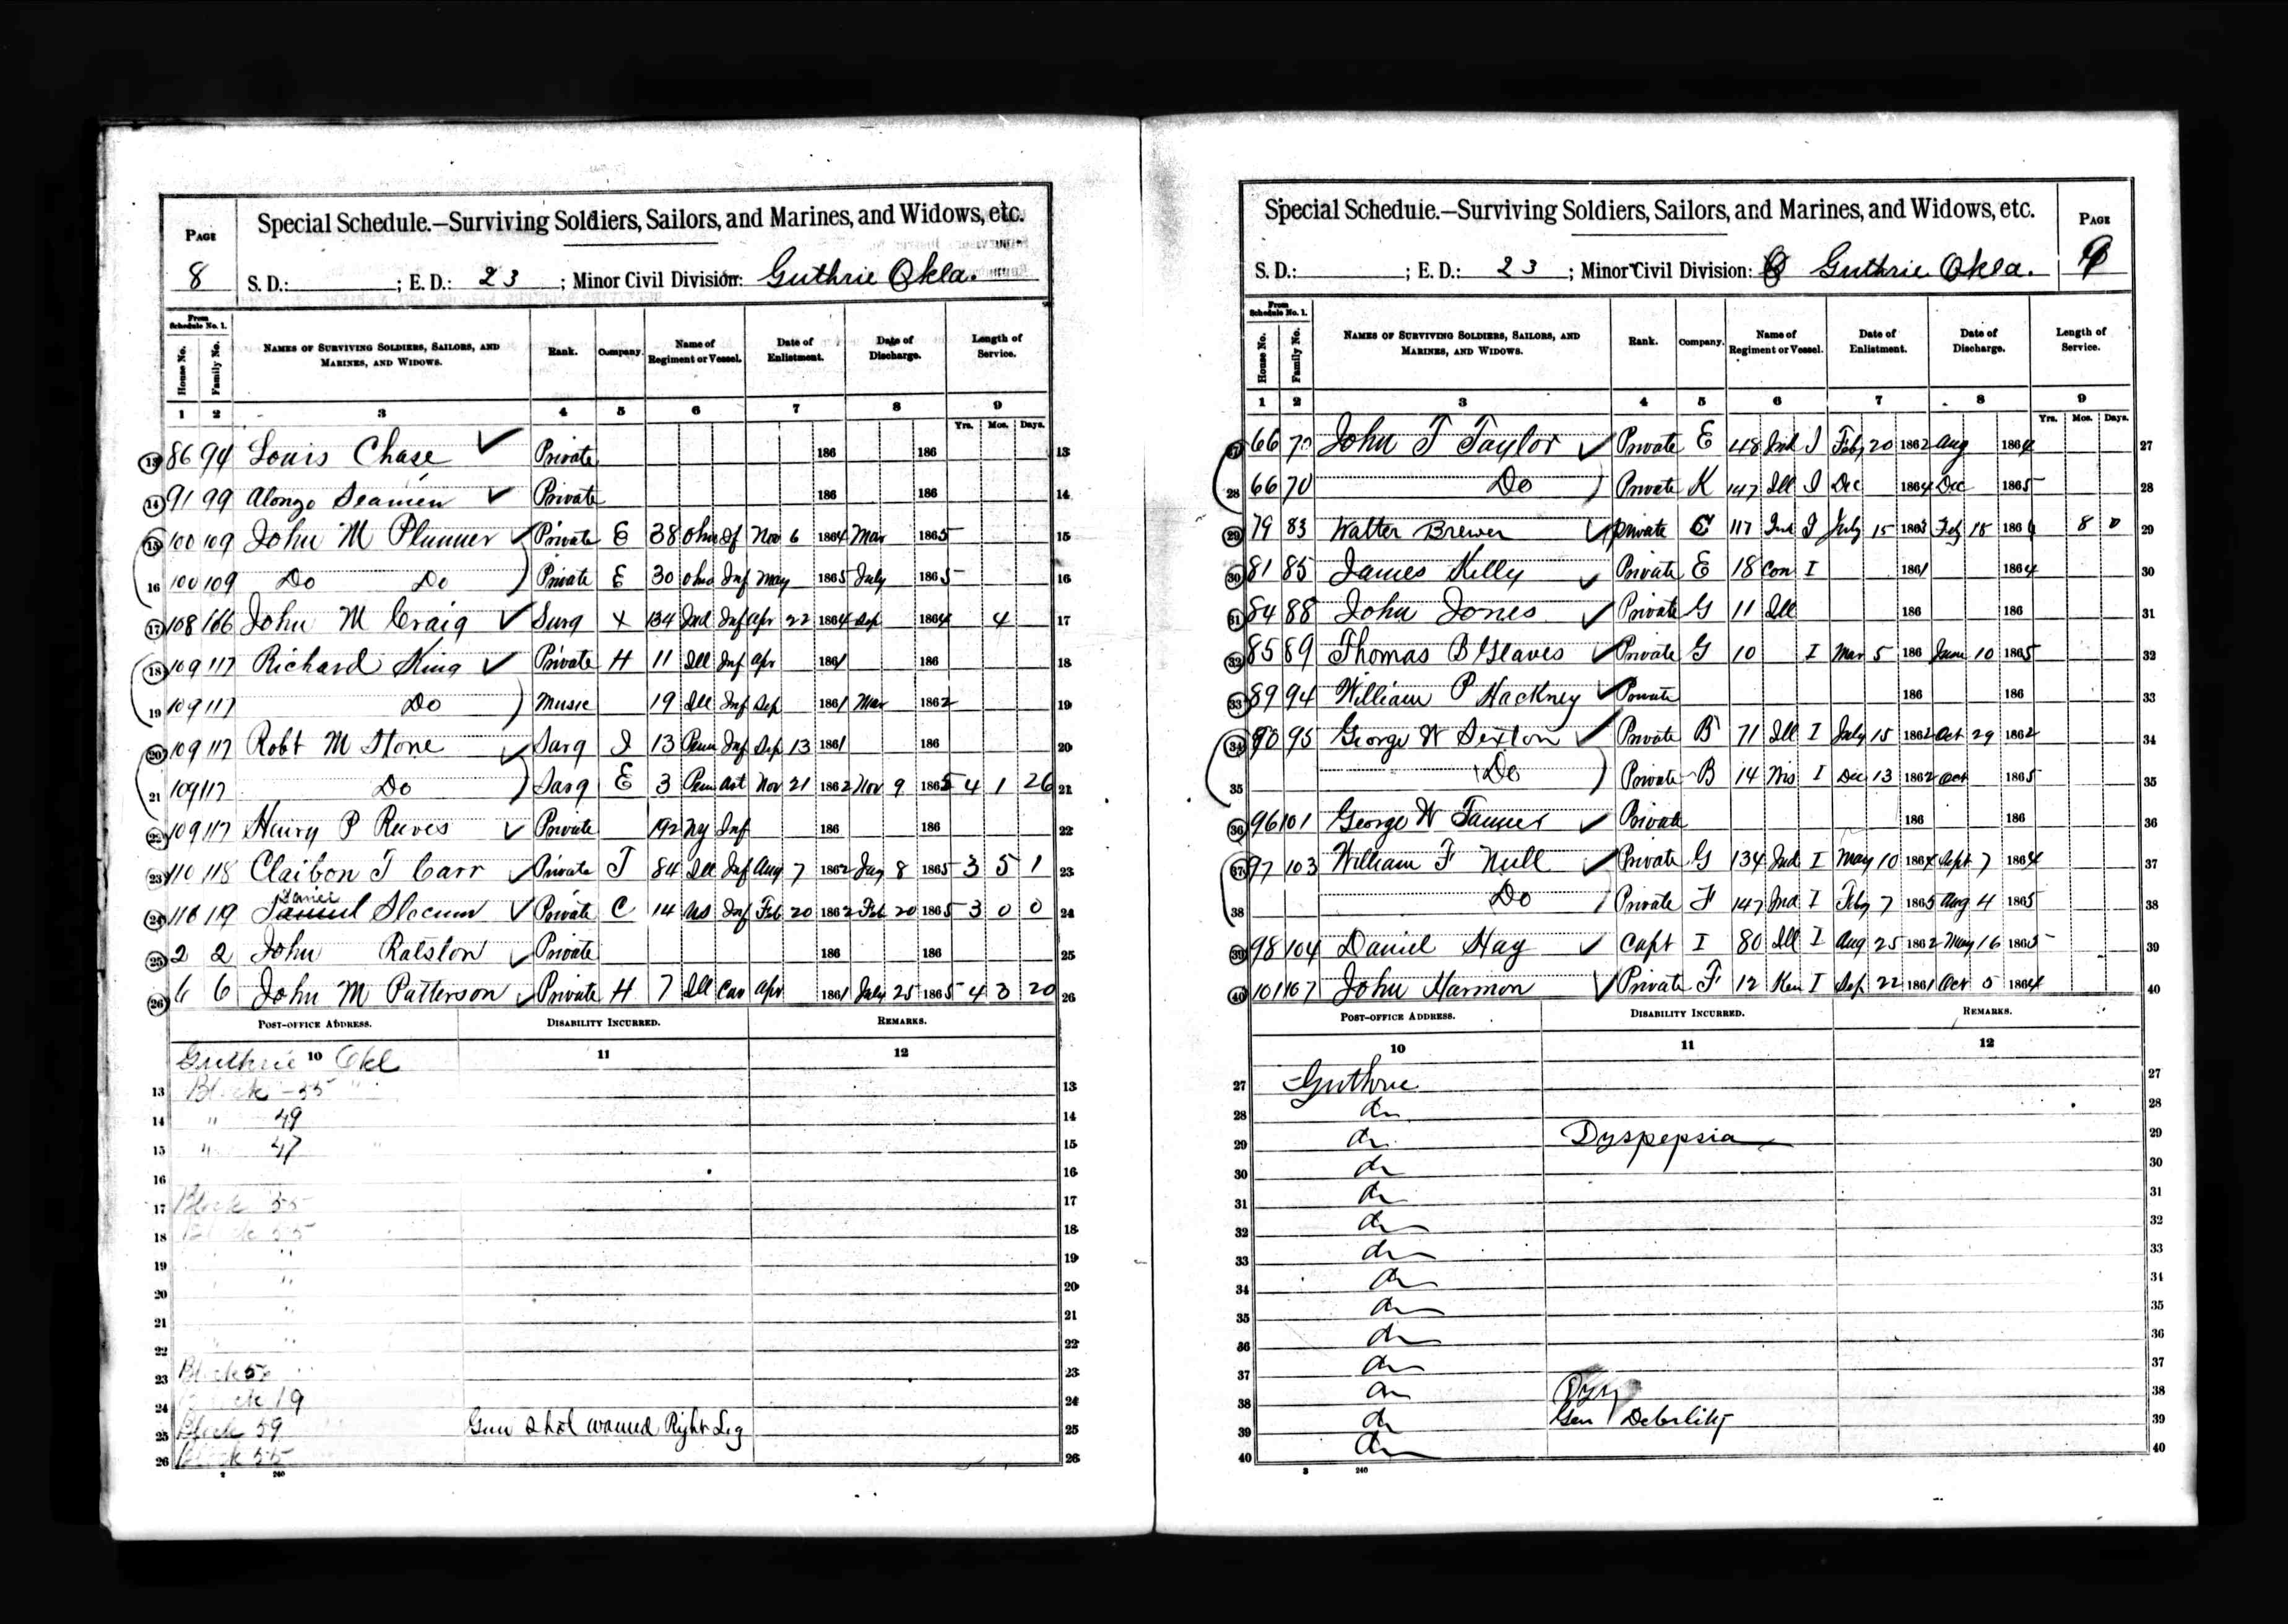 PAGE
8
Special Schedule.—Surviving Soldiers, Sailors, and Marines, and Widows, etc.
S. D.: ; E. D.: 23 ; Minor Civil Division: Guthrie Okla.
From Schedule No. 1.
House No. Family No. NAMES OF SURVIVING SOLDIERS, SAILORS, AND MARINES, AND WIDOWS. Rank. Company. Name of Regiment or Vessel. Date of Enlistment. Date of Discharge. Length of Service.
1 2 3 4 5 6 7 8 9
Yrs. Mos. Days.
13 86 94 Louis Chase Private 186 186 13
14 91 99 Alonzo Seamen Private 186 186 14
15 100 109 John M Plummer Private E 38 Ohio If Nov 6 1864 Mar 1865 15
16 100 109 Do Do Private E 30 Ohio Inf May 1865 July 1865 16
17 108 166 John M Craig Surg X 134 Ind Inf Apr 22 1864 Sep 1864 4 17
18 109 117 Richard King Private H 11 Ill Inf Apr 1861 186 18
19 109 117 Do Music 19 Ill Inf Sep 1861 Mar 1862 19
20 109 117 Robt M Stone Sarg I 13 Penn Inf Sep 13 1861 186 20
21 109 117 Do Sarg E 3 Penn Art Nov 21 1862 Nov 9 1865 4 1 26 21
22 109 117 Henry P Reeves Private 192 NY Inf 186 186 22
23 110 118 Claibon T Carr Private I 84 Ill Inf Aug 7 1862 Jug 8 1865 3 5 1 23
Daniel
24 110 119 Samuel Slocum Private C 14 US Inf Feb 20 1862 Feb 20 1865 3 0 0 24
25 2 2 John Ralston Private 186 186 25
26 6 6 John M Patterson Private H 7 Ill Cav Apr 1861 July 25 1865 4 3 20 26
POST-OFFICE ADDRESS. DISABILITY INCURRED. REMARKS.
Guthrie 10 Okl 11 12
13 Block -55 " 13
14 " 49 14
15 " 47 " 15
16 16
17 Block 55 17
18 Block 55 18
19 " 19
20 " 20
21 " 21
22 " 22
23 Block 56 " 23
24 19 24
25 Block 59 Gun Shot wound Right Leg 25
26 Block 55 26
2 240
Special Schedule.—Surviving Soldiers, Sailors, and Marines, and Widows, etc.
PAGE
9
S. D.: ; E. D.: 23 ; Minor Civil Division: Guthrie Okla.
From Schedule No. 1.
House No. Family No. NAMES OF SURVIVING SOLDIERS, SAILORS, AND MARINES, AND WIDOWS. Rank. Company. Name of Regiment or Vessel. Date of Enlistment. Date of Discharge. Length of Service.
1 2 3 4 5 6 7 8 9
Yrs. Mos. Days.
27 66 70 John T Taylor Private E 48 Ind I Feby 20 1862 Aug 1864 27
28 66 70 Do Private K 147 Ill I Dec 1864 Dec 1865 28
29 79 83 Walter Brewer Private C 117 Ind I July 15 1863 Feb 18 1864 8 0 29
30 81 85 James Kelly Private E 18 Con I 1861 1864 30
31 84 88 John Jones Private G 11 Ill 186 186 31
32 85 89 Thomas B Geaves Private G 10 I Mar 5 186 June 10 1865 32
33 89 94 William P Hackney Private 186 186 33
34 90 95 George W Sexton Private B 71 Ill I July 15 1862 Oct 29 1862 34
35 Do Private B 14 Wis I Dec 13 1862 Oct 1865 35
36 96 101 George W Tanner Private 186 186 36
37 97 103 William F Null Private G 134 Ind I May 10 1864 Sept 7 1864 37
38 Do Private F 147 Ind I Feby 7 1865 Aug 4 1865 38
39 98 104 Daniel Hay Capt I 80 Ill I Aug 25 1862 May 16 1865 39
40 101 107 John Harmon Private F 12 Ken I Sep 22 1861 Oct 5 1864 40
POST-OFFICE ADDRESS. DISABILITY INCURRED. REMARKS.
10 11 12
27 Guthrie 27
28 do 28
29 do Dyspepsia 29
30 do 30
31 do 31
32 do 32
33 do 33
34 do 34
35 do 35
36 do 36
37 do 37
38 do 38
39 do Gen Debility 39
40 do 40
3 240